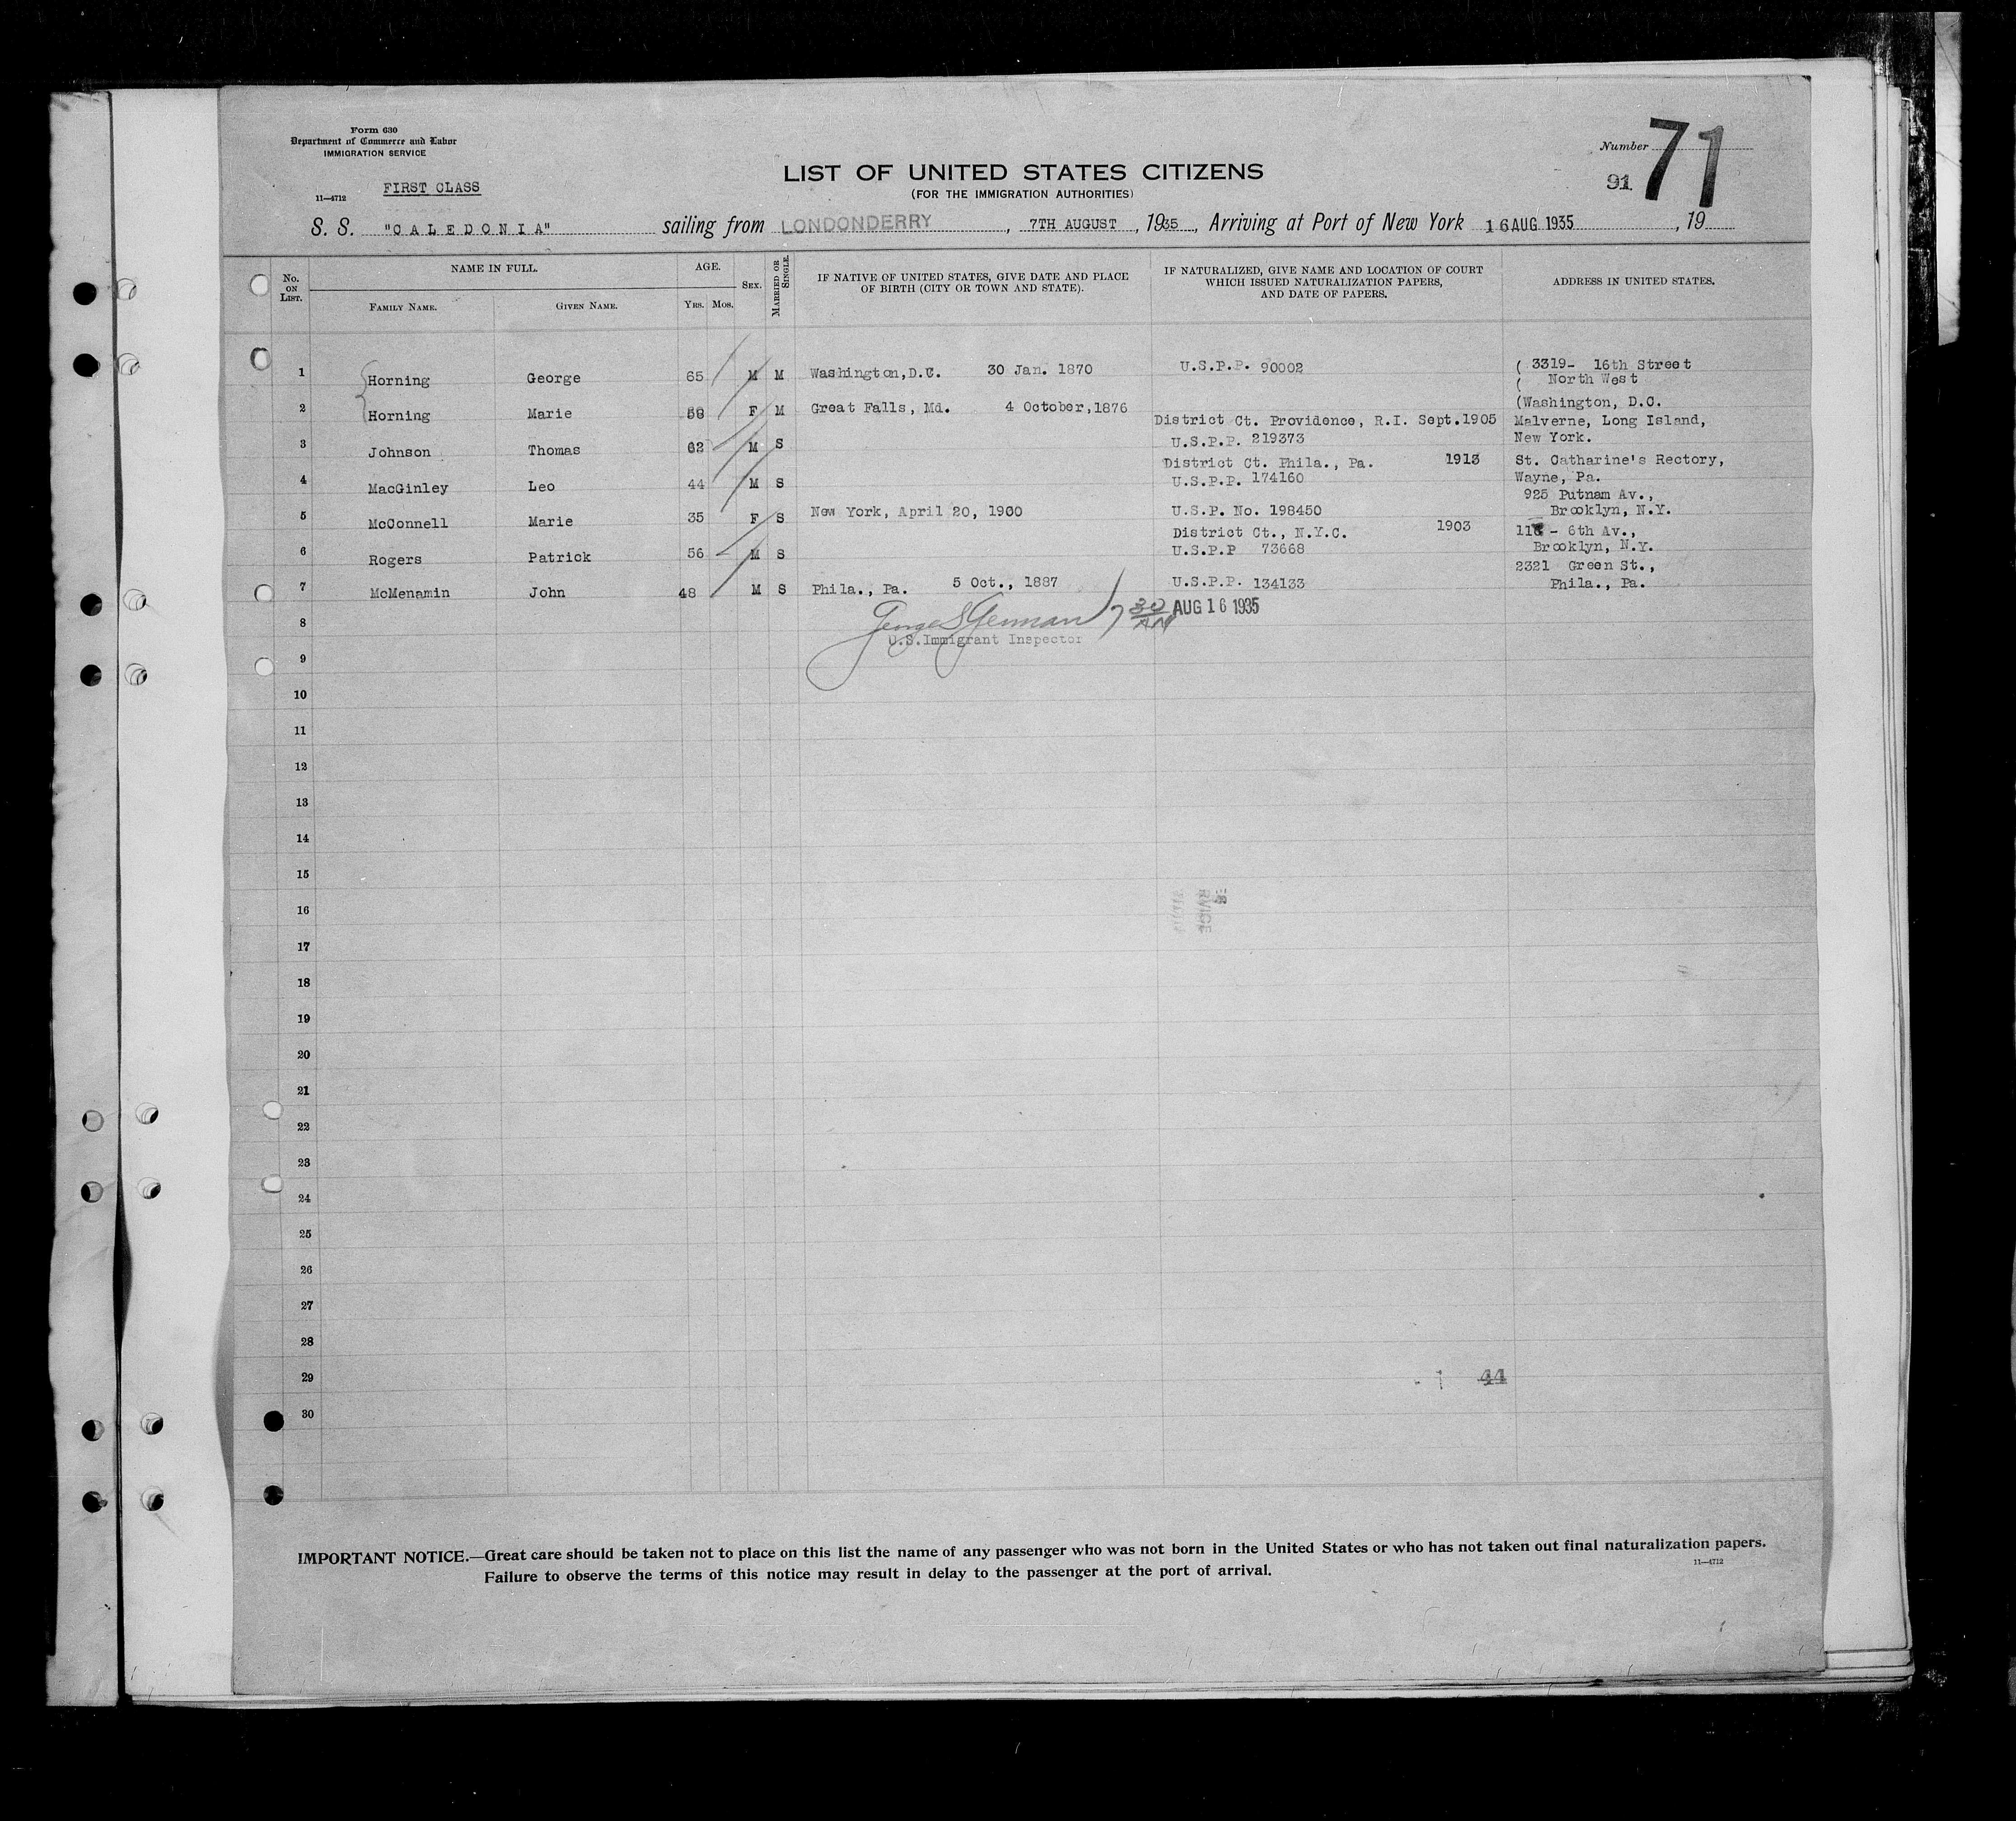 Form 630
Department of Commerce and Labor
IMMIGRATION SERVICE
11—4712
FIRST CLASS
LIST OF UNITED STATES CITIZENS
(FOR THE IMMIGRATION AUTHORITIES)
Number 71
91
S. S. "CALEDONIA" sailing from LONDONDERRY, 7TH AUGUST, 1935, Arriving at Port of New York 16 AUG 1935, 19
No. ON LIST.
NAME IN FULL.
FAMILY NAME.
GIVEN NAME.
AGE.
YRS. MOS.
SEX.
MARRIED OR SINGLE.
IF NATIVE OF UNITED STATES, GIVE DATE AND PLACE
OF BIRTH (CITY OR TOWN AND STATE).
IF NATURALIZED, GIVE NAME AND LOCATION OF COURT
WHICH ISSUED NATURALIZATION PAPERS,
AND DATE OF PAPERS.
ADDRESS IN UNITED STATES.
1 Horning George 65 M M Washington, D.C. 30 Jan. 1870 U.S.P.P. 90002 ( 3319- 16th Street
( North West
2 Horning Marie 58 F M Great Falls, Md. 4 October, 1876 (Washington, D.C.
District Ct. Providence, R.I. Sept.1905 Malverne, Long Island,
3 Johnson Thomas 62 M S U.S.P.P. 219373 New York.
District Ct. Phila., Pa. 1913 St. Catharine's Rectory,
4 MacGinley Leo 44 M S U.S.P.P. 174160 Wayne, Pa.
925 Putnam Av.,
5 McConnell Marie 35 F S New York, April 20, 1900 U.S.P. No. 198450 Brooklyn, N.Y.
District Ct., N.Y.C. 1903 - 6th Av.,
6 Rogers Patrick 56 M S U.S.P.P 73668 Brooklyn, N.Y.
2321 Green St.,
7 McMenamin John 48 M S Phila., Pa. 5 Oct., 1887 U.S.P.P. 134133 Phila., Pa.
8 7 30 AM AUG 16 1935
U.S.Immigrant Inspector
9
10
11
12
13
14
15
16
17
18
19
20
21
22
23
24
25
26
27
28
29 44
30
IMPORTANT NOTICE.—Great care should be taken not to place on this list the name of any passenger who was not born in the United States or who has not taken out final naturalization papers.
Failure to observe the terms of this notice may result in delay to the passenger at the port of arrival.
11—4712